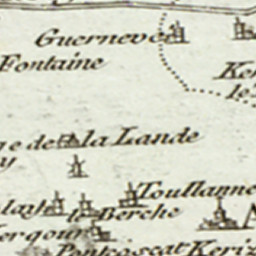 Guerneve
Fontaine
Ker
le
ge de la Lande
y
Toullanne
le Berche
Pontcoscat Keriz